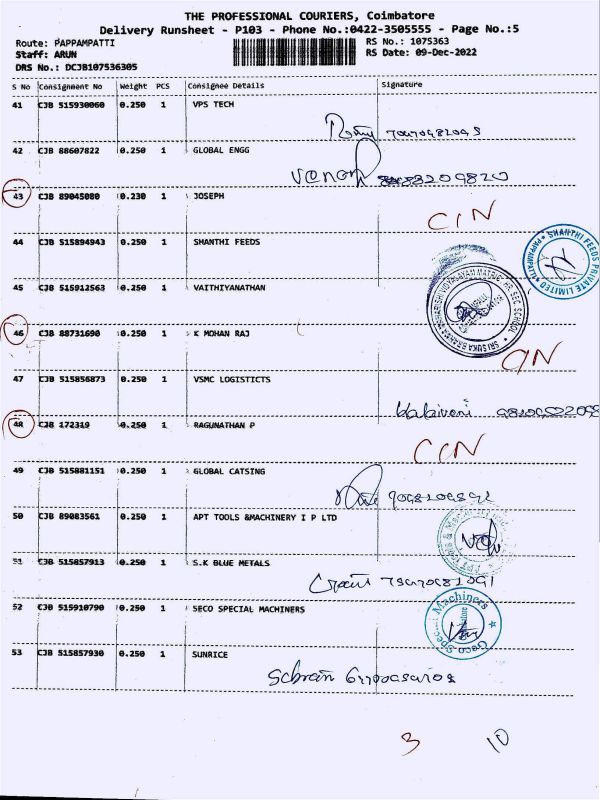 THE PROFESSIONAL COURIERS, Coimbatore
Delivery Runsheet - P103 - Phone No.:0422-3505555 - Page No.:5
Route: PAPPAMPATTI RS No.: 1075363
Staff: ARUN RS Date: 09-Dec-2022
DRS No.: DCJB107536305
S No Consignment No Weight PCS Consignee Details Signature
41 CJB 515930060 0.250 1 VPS TECH
42 CJB 88607822 0.250 1 GLOBAL ENGG
43 CJB 89045080 0.230 1 JOSEPH
CIN
44 CJB 515894943 0.250 1 SHANTHI FEEDS
SHANTHI FEEDS PRIVATE LIMITED
45 CJB 515912563 0.250 1 VAITHIYANATHAN
46 CJB 88731690 0.250 1 K MOHAN RAJ
CIN
47 CJB 515856873 0.250 1 VSMC LOGISTICTS
48 CJB 172319 0.250 1 RAGUNATHAN P
CIN
49 CJB 515881151 0.250 1 GLOBAL CATSING
50 CJB 89083561 0.250 1 APT TOOLS &MACHINERY I P LTD
51 CJB 515857913 0.250 1 S.K BLUE METALS
52 CJB 515910790 0.250 1 SECO SPECIAL MACHINERS
53 CJB 515857930 0.250 1 SUNRICE
3 10